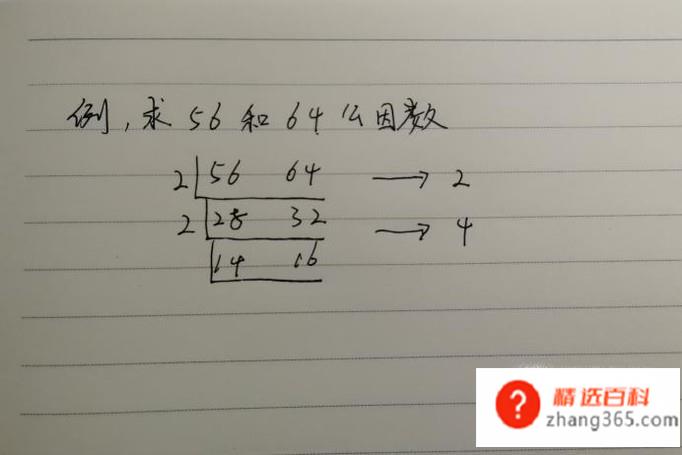 例，求 56 和 64 公因数
2 56 64 → 2
2 28 32 → 4
14 16
?
精选百科
zhang365.com